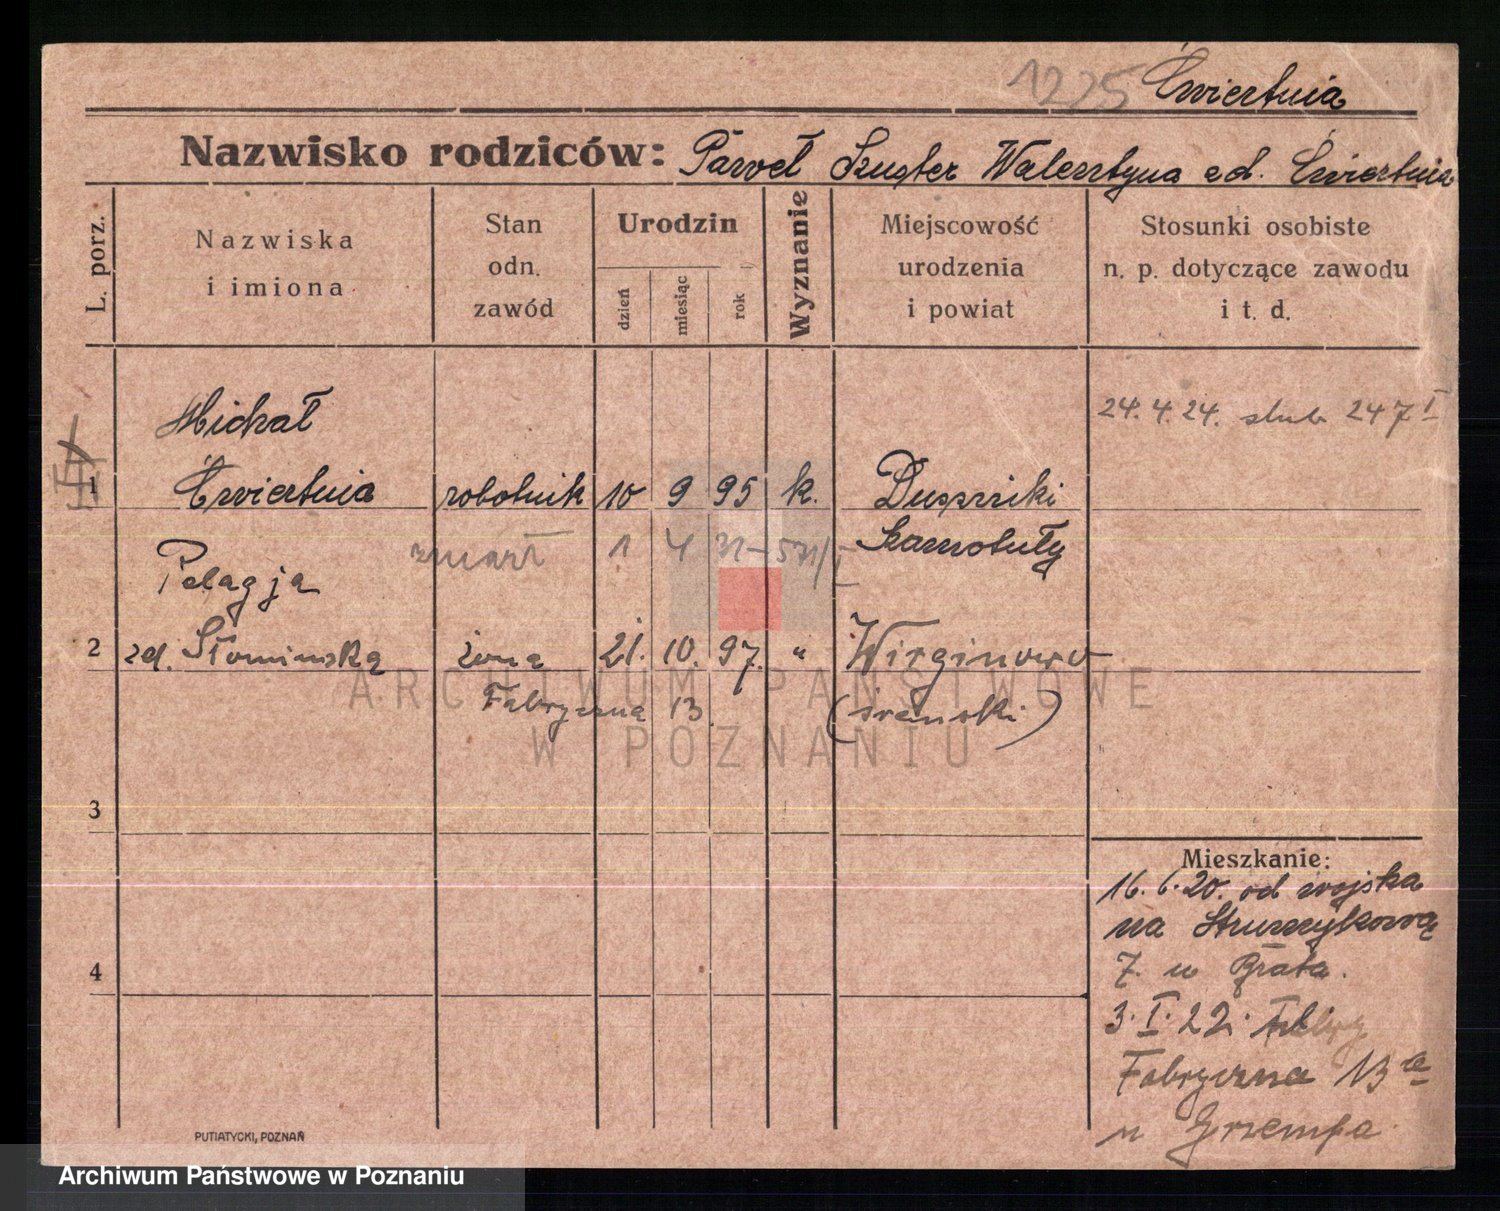 1225 Ćwiertnia
Nazwisko rodziców: Paweł Szuster Walentyna zd. Ćwiertnia
L. porz.
Nazwiska
i imiona
Stan
odn.
zawód
Urodzin
dzień
miesiąc
rok
Wyznanie
Miejscowość
urodzenia
i powiat
Stosunki osobiste
n. p. dotyczące zawodu
i t. d.
Michał
24. 4. 24. slub 247 I
1 Ćwiertnia robotnik 10 9 95 k. Duszniki
zmarł 1 4 Szamotuły
Pelagja
2 zd. Słomińska żona 21. 10. 97. " Wirginowo
Fabryczna 13 (śremski)
3
4
Mieszkanie:
16. 6. 20. od wojska
na Strumykową
7. u Brata.
3. I. 22.
Fabryczna 13 a
u Grzempa
PUTIATYCKI, POZNAŃ
ARCHIWUM PAŃSTWOWE
W POZNANIU
Archiwum Państwowe w Poznaniu